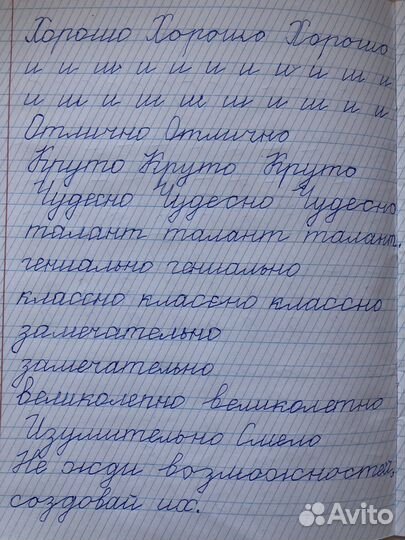 Хорошо Хорошо Хорошо
и и ш и и и и и и ш и
и ш и ш ш ш и ш и и
Отлично Отлично
Круто Круто Круто
Чудесно Чудесно Чудесно
талант талант талант.
гениально гениально
классно классно классно
замечательно
замечательно
великолепно великолепно
Изумительно Смело
Не жди возможностей,
создовай их.
Avito